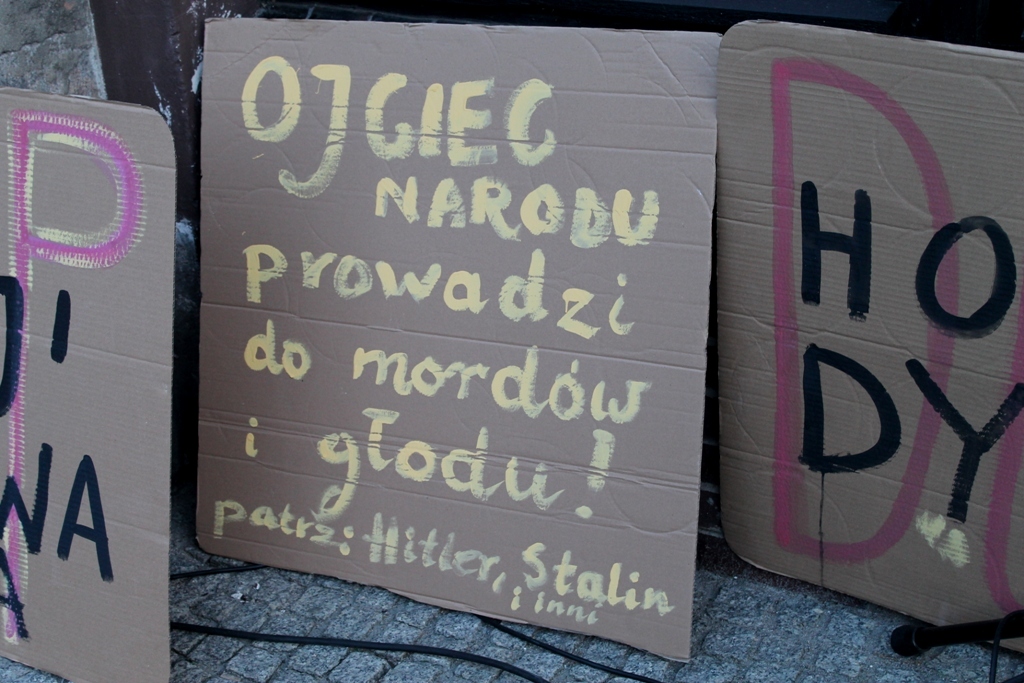 OJCIEC
NARODU
prowadzi
do mordów
i głodu!
patrz: Hitler, Stalin
i inni
P
JI
NA
A
D
HO
DY